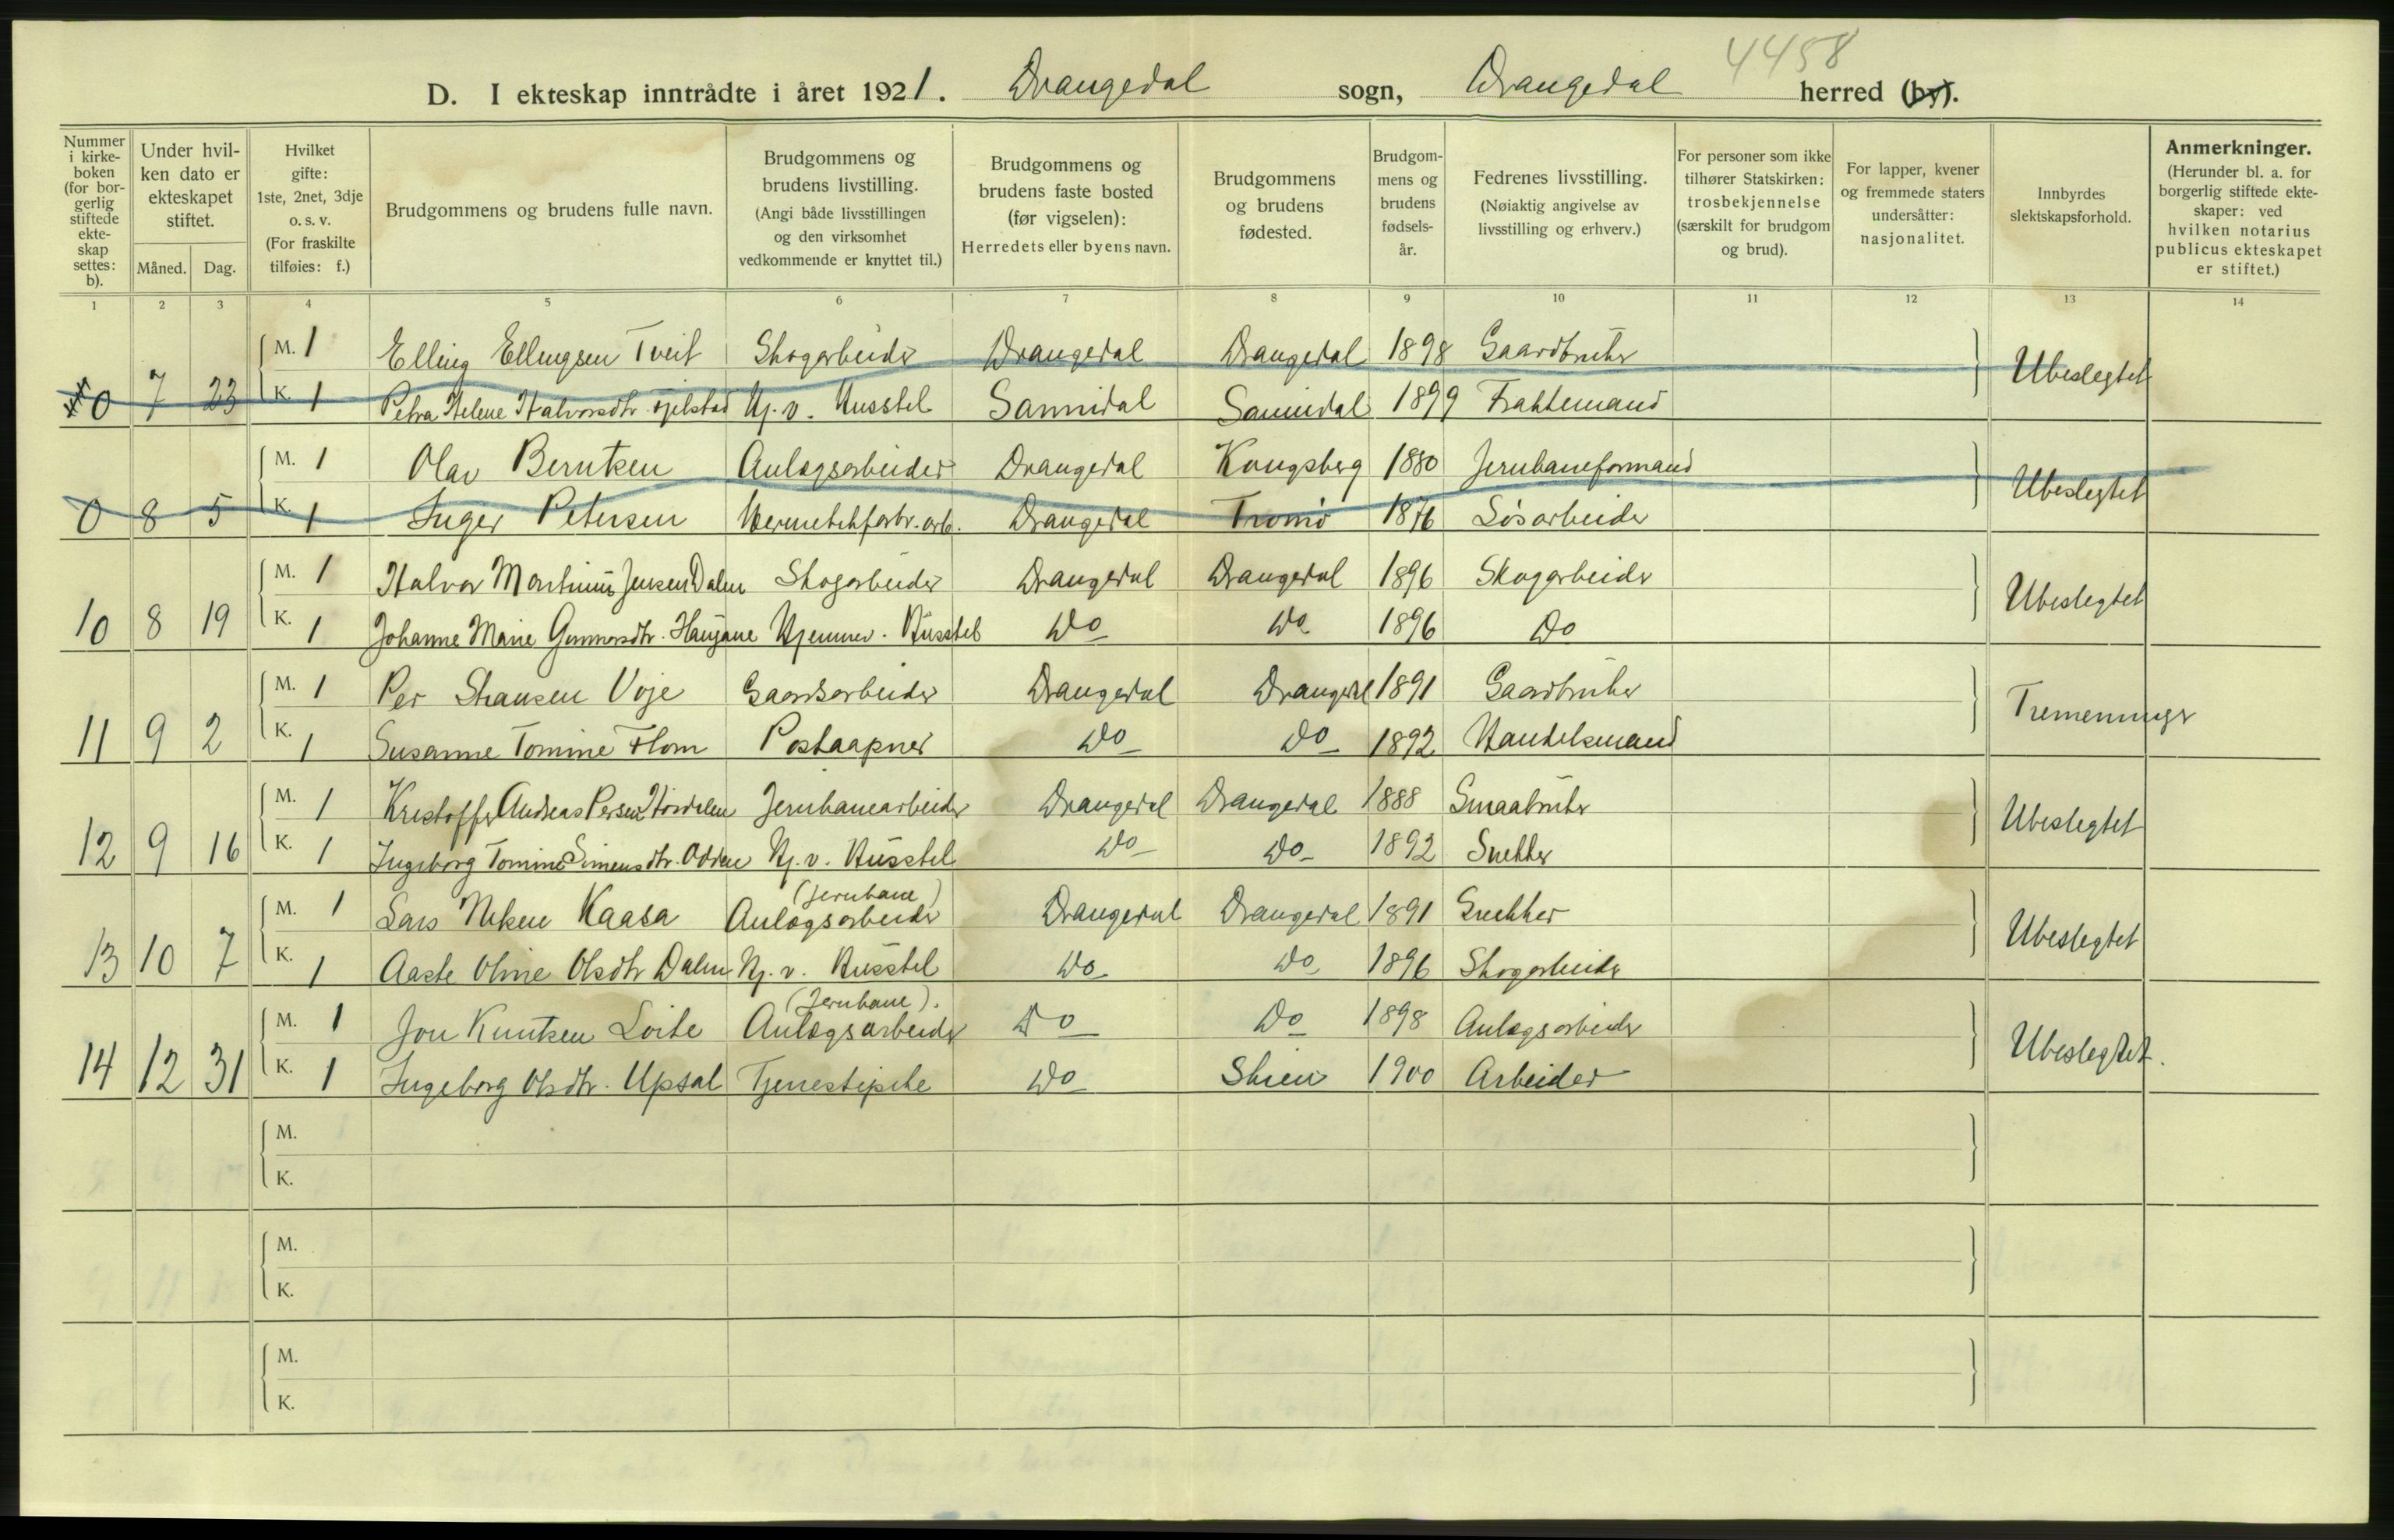 4458
D. I ekteskap inntrådte i året 1921. Drangedal sogn, Drangedal herred (by).
Nummer i kirke- boken (for bor- gerlig stiftede ekte- skap settes: b).
Under hvil- ken dato er ekteskapet stiftet.
Måned. Dag.
Hvilket gifte: 1ste, 2net, 3dje o. s. v. (For fraskilte tilføies: f.)
Brudgommens og brudens fulle navn.
Brudgommens og brudens livstilling. (Angi både livsstillingen og den virksomhet vedkommende er knyttet til.)
Brudgommens og brudens faste bosted (før vigselen): Herredets eller byens navn.
Brudgommens og brudens fødested.
Brudgom- mens og brudens fødsels- år.
Fedrenes livsstilling. (Nøiaktig angivelse av livsstilling og erhverv.)
For personer som ikke tilhører Statskirken: trosbekjennelse (særskilt for brudgom og brud).
For lapper, kvener og fremmede staters undersåtter: nasjonalitet.
Innbyrdes slektskapsforhold.
Anmerkninger. (Herunder bl. a. for borgerlig stiftede ekte- skaper: ved hvilken notarius publicus ekteskapet er stiftet.)
1 2 3 4 5 6 7 8 9 10 11 12 13 14
M. 1 Elling Ellingsen Tveit Skogarbeider Drangedal Drangedal 1898 Gaardbruker Ubeslegtet
0 7 23 K. 1 Petra Helene Halvorsdtr. Hj. v. Husstel Sannidal Sannidal 1899 Fraktemand
M. 1 Olav Berntsen Anlægsarbeider Drangedal Kongsberg 1880 Jernbaneformand Ubeslegtet
0 8 5 K. 1 Inger Petersen Hermetikfabr. arb. Drangedal Tromö 1876 Løsarbeider
M. 1 Halvor Martinius Jensen Dalen Skogarbeider Drangedal Drangedal 1896 Skogarbeider Ubeslegtet
10 8 19 K. 1 Johanne Marie Gunnarsdtr. Haujane Hjemmev. Husstel Do Do 1896 Do
M. 1 Per Stransen Voje Gaardsarbeider Drangedal Drangedal 1891 Gaardbruker Tremenninger
11 9 2 K. 1 Susanne Tomine Flom Postaapner Do Do 1892 Handelsmand
M. 1 Kristoffer Andreas Persen Hørdalen Jernbanearbeider Drangedal Drangedal 1888 Smaabruker Ubeslegtet
12 9 16 K. 1 Ingeborg Tomine Simensdtr. Odden Hj. v. Husstel Do Do 1892 Snekker
(Jernbane)
M. 1 Lars Nilsen Kaasa Anlægsarbeider Drangedal Drangedal 1891 Snekker Ubeslegtet
13 10 7 K. 1 Aaste Oline Olsdtr Dalen Hj. v. Husstel Do Do 1896 Skogarbeider
(Jernbane).
M. 1 Jon Knutsen Loite Anlægsarbeider Do Do 1898 Anlægsarbeider Ubeslegtet.
14 12 31 K. 1 Ingeborg Olsdtr. Upsal Tjenestepike Do Skien 1900 Arbeider
M.
K.
M.
K.
M.
K.